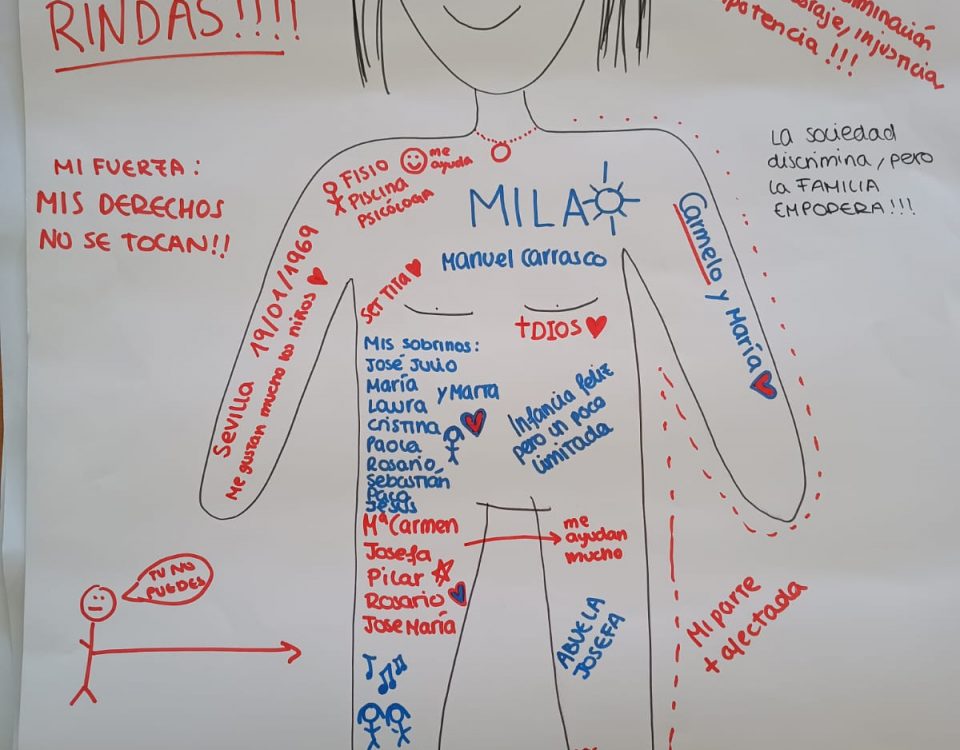 RINDAS!!!!
injusticia,
potencia!!!
MI FUERZA:
MIS DERECHOS
NO SE TOCAN!!
La sociedad
discrimina, pero
La FAMILIA
EMPODERA!!!
FISIO
PISCINA
PSICÓLOGA
me
ayuda
MILA
Manuel Carrasco
Carmelo y María
Sevilla 19/01/1969
Me gustan mucho los niños
SER TITA
+DIOS
Mis sobrinos:
José Julio
María y Marta
Laura
Cristina
Paola
Rosario,
Sebastián
Paco
Jesús
Infancia feliz
pero un poco
limitada
Mª Carmen
Josefa
Pilar
Rosario
Jose María
me
ayudan
mucho
TU NO
PUEDES
ABUELA
JOSEFA
Mi parte
+ afectada